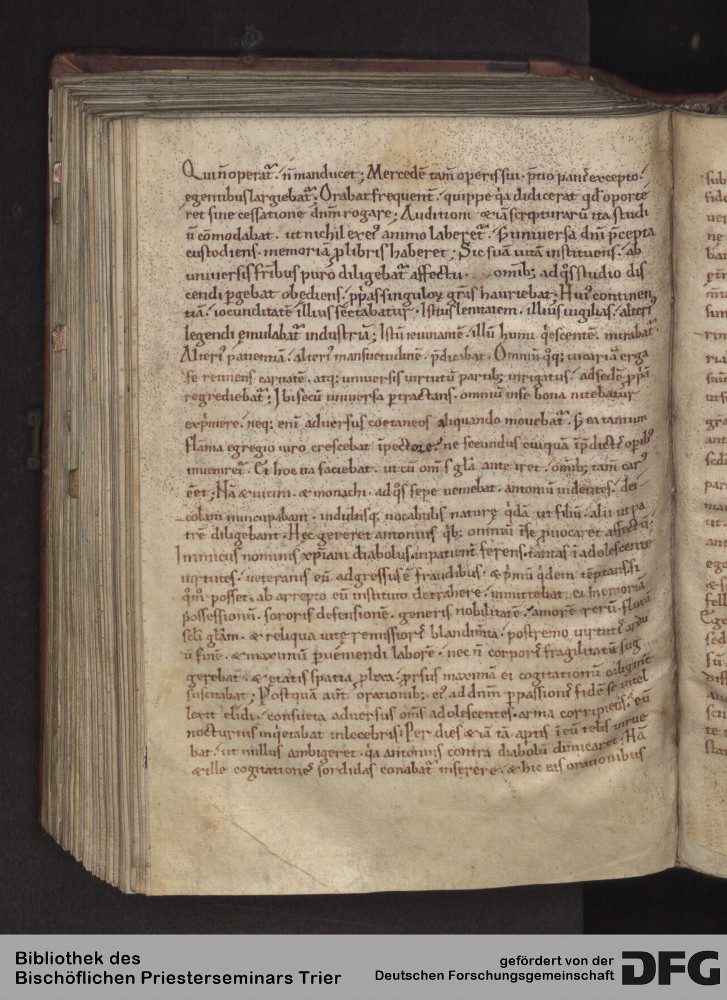 Qui n̄ operat᷒. n̄ manducet; Mercedē tam̄ operis sui. p̄tio panis excepto.
egentibus largiebat᷒. Orabat frequent̄. quippe q̇a didicerat qd̄ oporte
ret sine cessatione dn̄m rogare; Auditioni &iā scripturarū ita studi
ū cōmodabat. ut nichil ex ei᷒ animo laberet᷒. S; universa dn̄i p̄cepta
custodiens. memoriā p libris haberet; Sic suā uitā instituens. ab
universis frībus puro diligebat᷒ affectu. omib; ad q̊s studio dis
cendi pgebat obediens. p̄pas singuloꝝ grās hauriebat; Hui᷒ continen
tiā. iocunditatē illius sectabatur. Isti᷒ lenitatem. illius uigilias. alteri᷒
legendi emulabat᷒ industriā; Istū ieiunantē. illū humi q̇escentē. mirabat᷒.
Alteri᷒ patientiā. alteri᷒ mansuetudinē. p̄dicabat. Omniū q̇q; uicariā erga
se retinens caritatē. atq; universis uirtutū partib; inrigatus. ad sedē p̄pā
regrediebat᷒; Ibi secū universa ptractans. omniū in se bona nitebatur
exp̄mere. neq; eni᷒ adversus coetaneos aliquando mouebat᷒. S; ea tantum
flāma egregio uiro crescebat ī pectore. ne secundus cuiquā ī p̄dictis opib᷒
inueniret᷒. Et hoc ita faciebat. ut cū om̄s glā ante iret. om̄ib; tam̄ car᷒
eēt; Nā & uicini. & monachi. ad q̊s sepe ueniebat. antoniū uidentes. dei
colam nuncupabant. indultisq; uocabulis nature q̇dā ut filiū. alii ut pa
trē diligebant. Hęc gereret antonius q̇b; omniū ī se p̄uocaret affectū.
Inimicus nominis xpiani diabolus. inpatient̄ ferens. tantas ī adolescente
uirtutes. ueteranis eū adgressus ē fraudibus. & p̄mū q̇dem tēptans. si
q̊m̊ posset. ab arrepto eū instituto detrahere. inmittebat. ei memoriā
possessionū. sororis defensionē. generis nobilitatē. amorē rerū. fluxā
scl̄i glām. & reliqua uite remissioris blandim̄ta. postremo uirtutis ardu
ū finē. & maximū p̄ueniendi laborē. nec n̄ corporis fragilitatē sug
gerebat. & etatis spatia plixa. p̄rsus maximā ei cogitationū caliginē
suscitabat; Postquā aut̄ orationib; ei᷒ ad dn̄m p passionis fidē se uitel
lexit elidi. consueta adversus om̄s adolescentes. arma corripiens. eū
nocturnis inq̇etabat inlecebris; Per dies &iā tā aptis ī eū telis inrue
bat. ut nullus ambigeret. q̇a antonius contra diabolū dimicaret. Nā
& ille cogitationes sordidas conabat᷒ inserere. & hic eas orationibus
Bibliothek des
Bischöflichen Priesterseminars Trier
gefördert von der
Deutschen Forschungsgemeinschaft
DFG